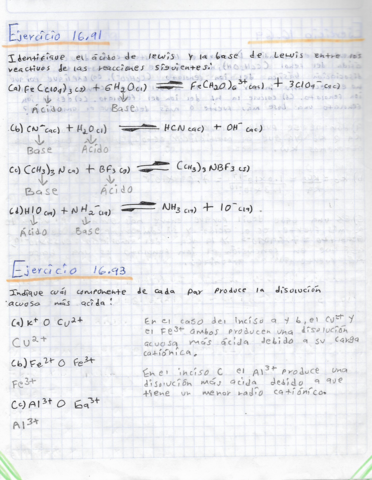 Ejercicio 16.91
Identifique el ácido de lewis y la base de Lewis entre los
reactivos de las reacciones siguientes:
(a) Fe(ClO4)3(s) + 6H2O(l) ⇌ Fe(H2O)6³⁺(ac) + 3ClO4⁻(ac)
↓ ↓
Ácido Base
(b) CN⁻(ac) + H2O(l) ⇌ HCN(ac) + OH⁻(ac)
↓ ↓
Base Ácido
(c) (CH3)3N(g) + BF3(g) ⇌ (CH3)3NBF3(s)
↓ ↓
Base Ácido
(d) HIO(lq) + NH2⁻(lq) ⇌ NH3(lq) + IO⁻(lq)
↓ ↓
Ácido Base
Ejercicio 16.93
Indique cuál componente de cada par produce la disolución
acuosa más acida:
(a) K⁺ O Cu²⁺
Cu²⁺
(b) Fe²⁺ O Fe³⁺
Fe³⁺
(c) Al³⁺ O Ga³⁺
Al³⁺
En el caso del inciso a y b, el Cu²⁺ y
el Fe³⁺ ambos producen una disolución
acuosa más ácida debido a su carga
catiónica.
En el inciso C el Al³⁺ produce una
disolución más acida debido a que
tiene un menor radio catiónico.